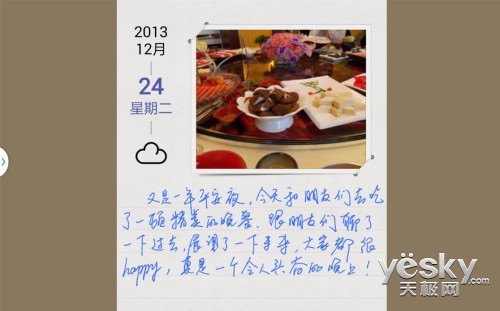 2013
12月
24
星期二
又是一年平安夜，今天和朋友们去吃
了一顿精美的晚餐。跟朋友们聊了
一下过去，展望了一下未来，大家都很
happy，真是一个令人兴奋的晚上！
yesky
天极网